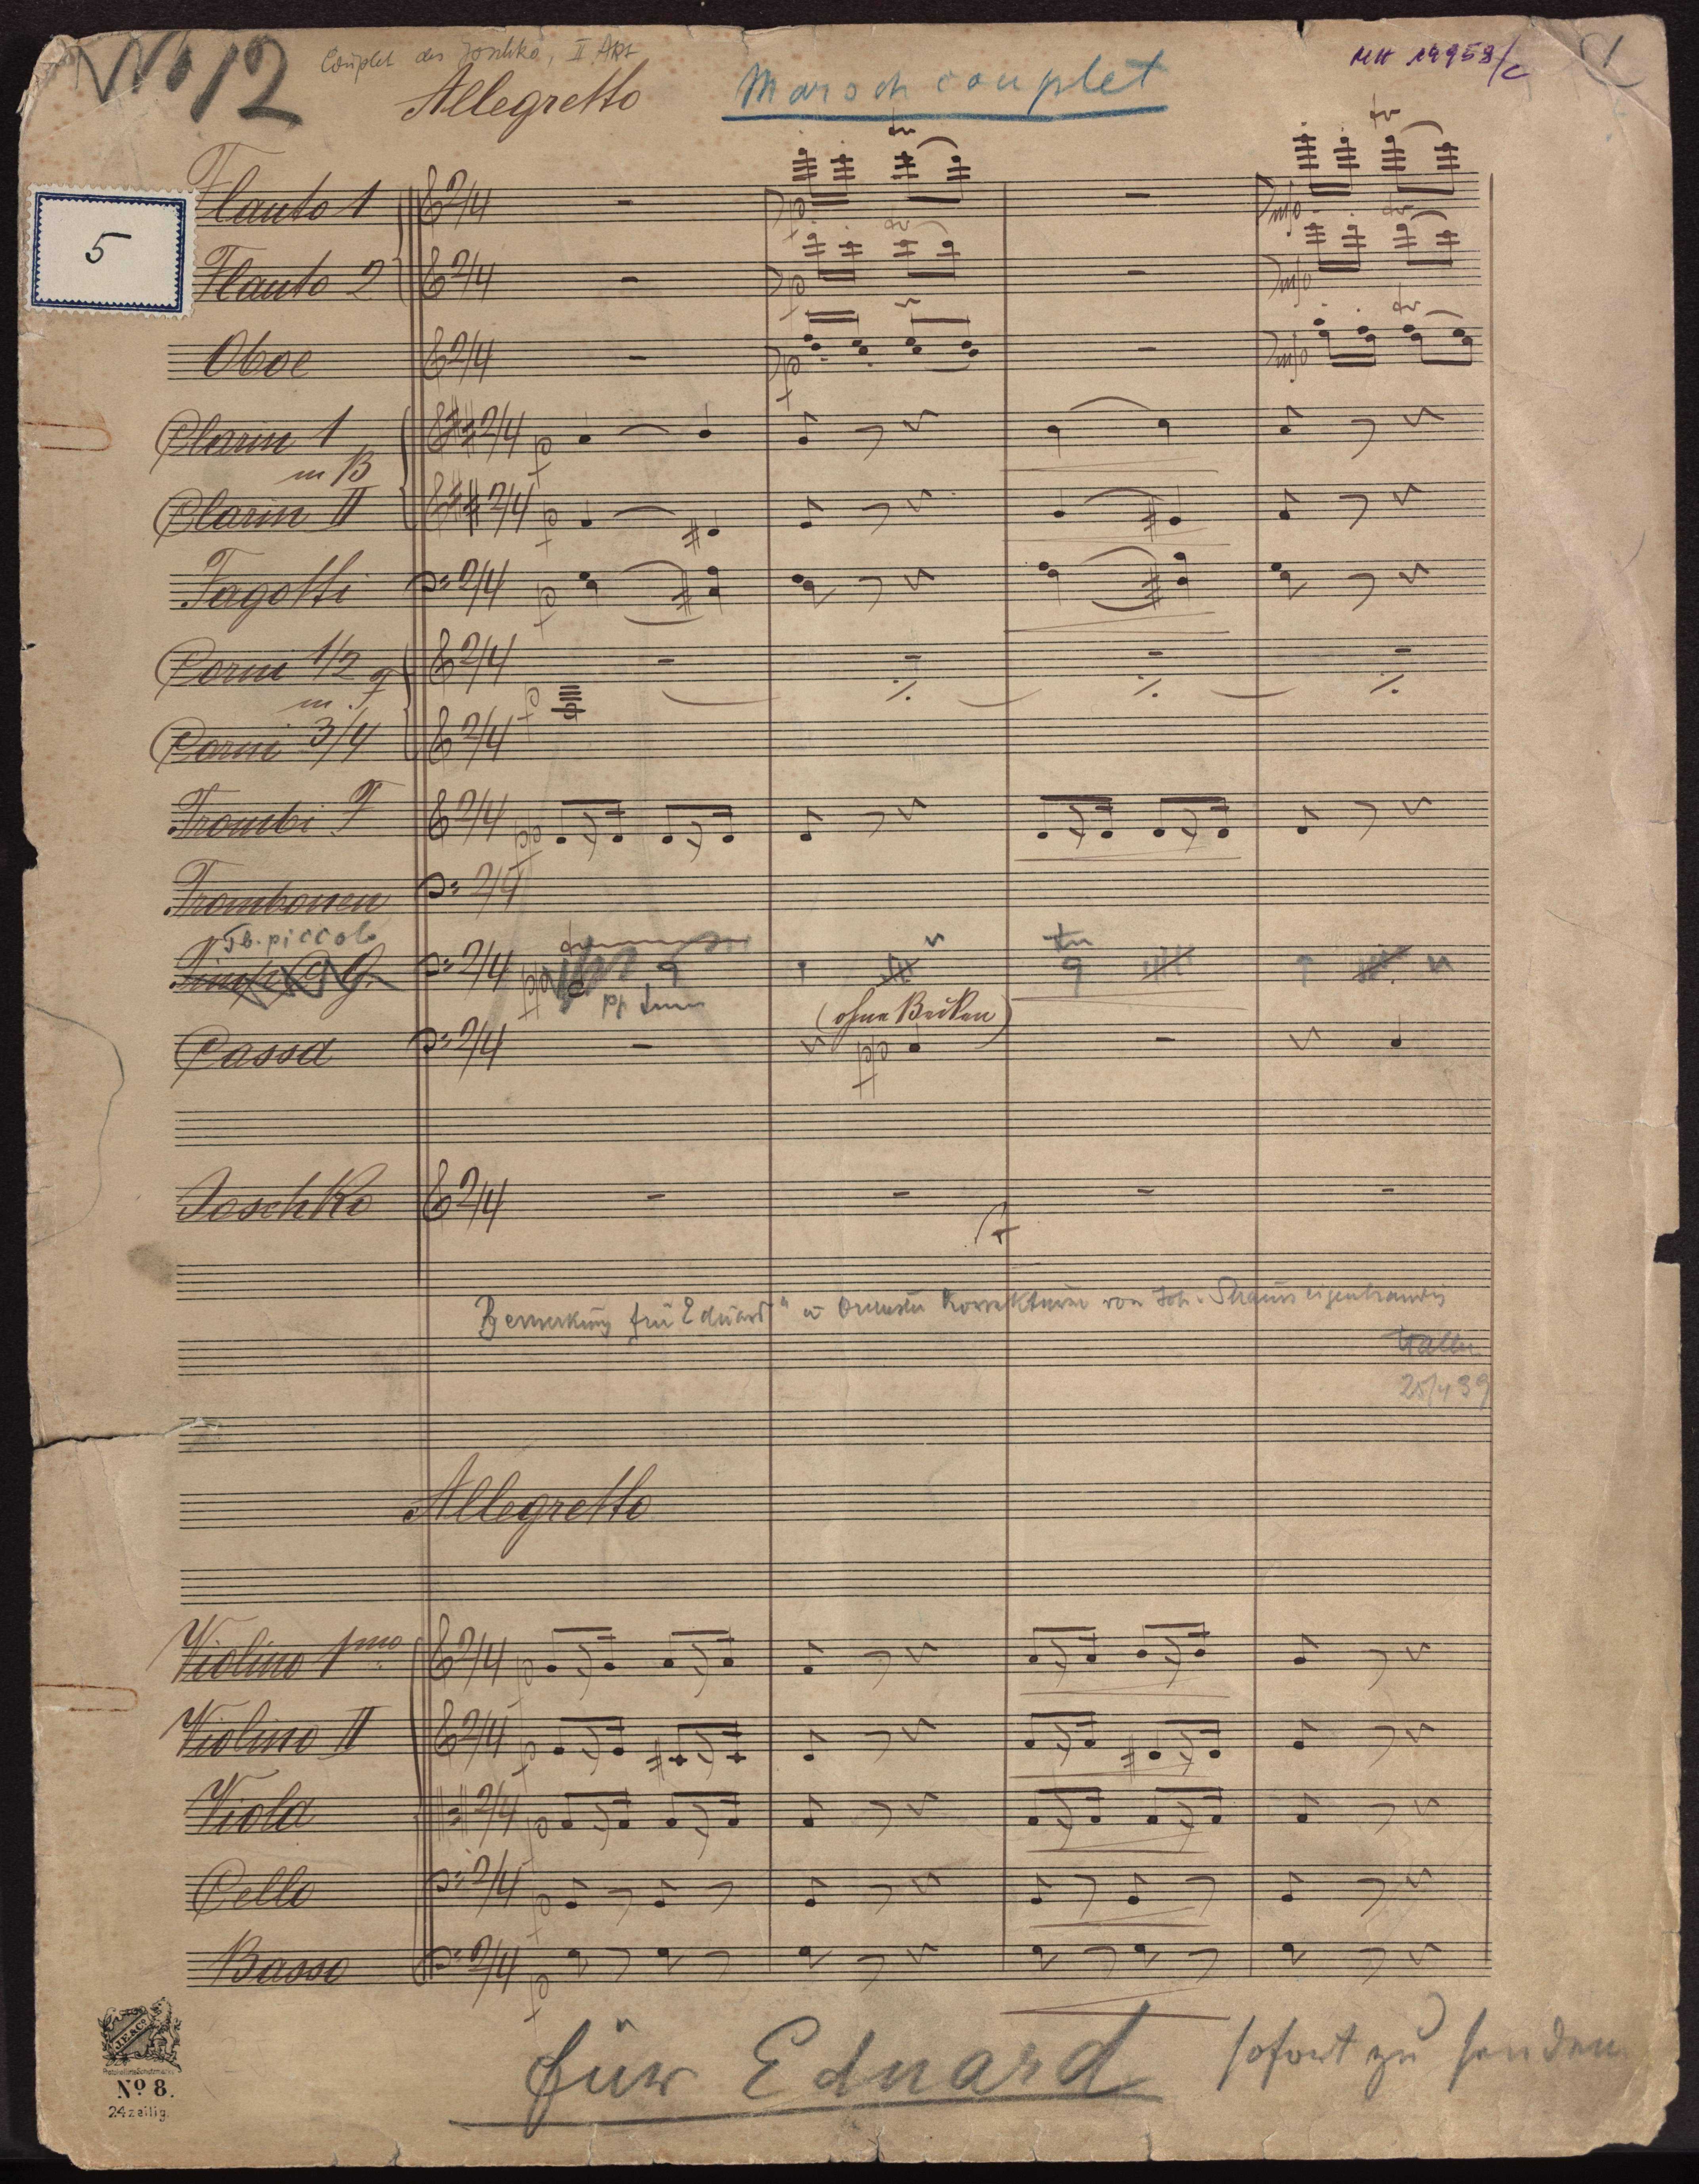 No 12
Couplet des Joschko, II. Akt
MH 19958/c
1
Allegretto
Marschcouplet
5
Flauto 1 2/4
p
mfp
tr
Flauto 2 2/4
p
mfp
tr
Oboe 2/4
p
mfp
tr
Clarin 1 2/4
p
in B
Clarin II 2/4
p
Fagotti 2/4
p
Corni 1/2 2/4
in F
p
Corni 3/4 2/4
Trombi F 2/4
pp
Trombonen 2/4
Tb. piccolo
Timp C G. 2/4
pp
tr
tr
(ohne Becken)
Cassa 2/4
pp
Joschko 2/4
Bemerkung "für Eduard" u Orchester Korrekturen von Joh. Strauss eigenhändig
25/4 39
Allegretto
Violino 1mo 2/4
p
Violino II 2/4
p
Viola 2/4
p
Cello 2/4
p
Basso 2/4
p
für Eduard sofort zu senden
J.E. & Co.
No 8.
24zeilig.